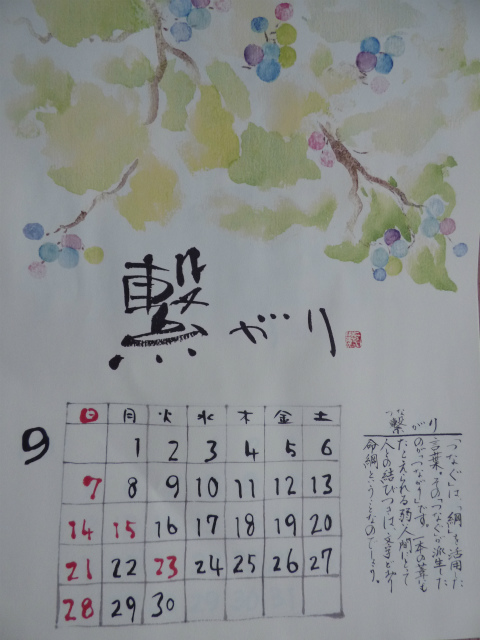 繋がり
9
日 月 火 水 木 金 土
1 2 3 4 5 6
7 8 9 10 11 12 13
14 15 16 17 18 19 20
21 22 23 24 25 26 27
28 29 30
つな
繋がり
「つなぐ」は、「綱」を活用した
言葉。その「つなぐ」が派生した
のが「つながり」です。一本の葦にも
たとえられる弱い人間にとって
人との結びつきは、文字どおり
命綱ということなのでしょう。